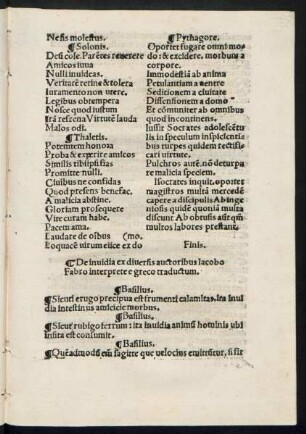 Nesis molestus.
¶Solonis.
Deū cole. Parētes reuerere
Amicos iuua
Nulli inuideas.
Veritatē retine & tolera
Iuramento non vtere.
Legibus obtempera
Nosce quod iustum
Irā refrena Virtutē lauda
Malos odi.
¶Thaletis.
Potentem honora
Proba & exxperire amicos
Similis tibi ipsi sias
Promitte nulli.
Ciuibus ne confidas
Quod presens benefac.
A malicia abstine.
Gloriam prosequere
Vite curam habe.
Pacem ama.
Laudare de oībus (mo.
Eoquacē virum eiice ex do
¶Pythagore.
Oportet fugare omni mo-
do: & excidere. morbum a
corpore.
Immodestiā ab anima
Petulantiam a ventre
Seditionem a ciuitate
Dissensionem a domo
Et cōmuniter ab omnibus
quod incontinens.
Iussit Socrates adolescētu
lis in speculum inspicientia
bus turpes quidem tectis-
ciari virtute.
Pulchros autē. nō deturpa
re malicia speciem.
Isocrates inquit. oportet
magistros multā mercedē
capere a discipulis Ab inge
niosis quidē quoniā multa
discunt Ab obtusis aūt qm̄
multos labores prestant.
Finis.
¶De inuidia ex diuersis auctoribus Iacobo
Fabro interprete e greco traductum.
¶Basilius.
¶Sicut erugo precipua est frumenti calamitas. ita inui
dia intestinus amicicie morbus.
¶Basilius.
¶Sicut rubigo ferrum: ita inuidia animū hominis ubi
insita est consumit.
¶Basilius.
¶Quēadmodū em̄ sagitte que velocius emittūtur, si sir